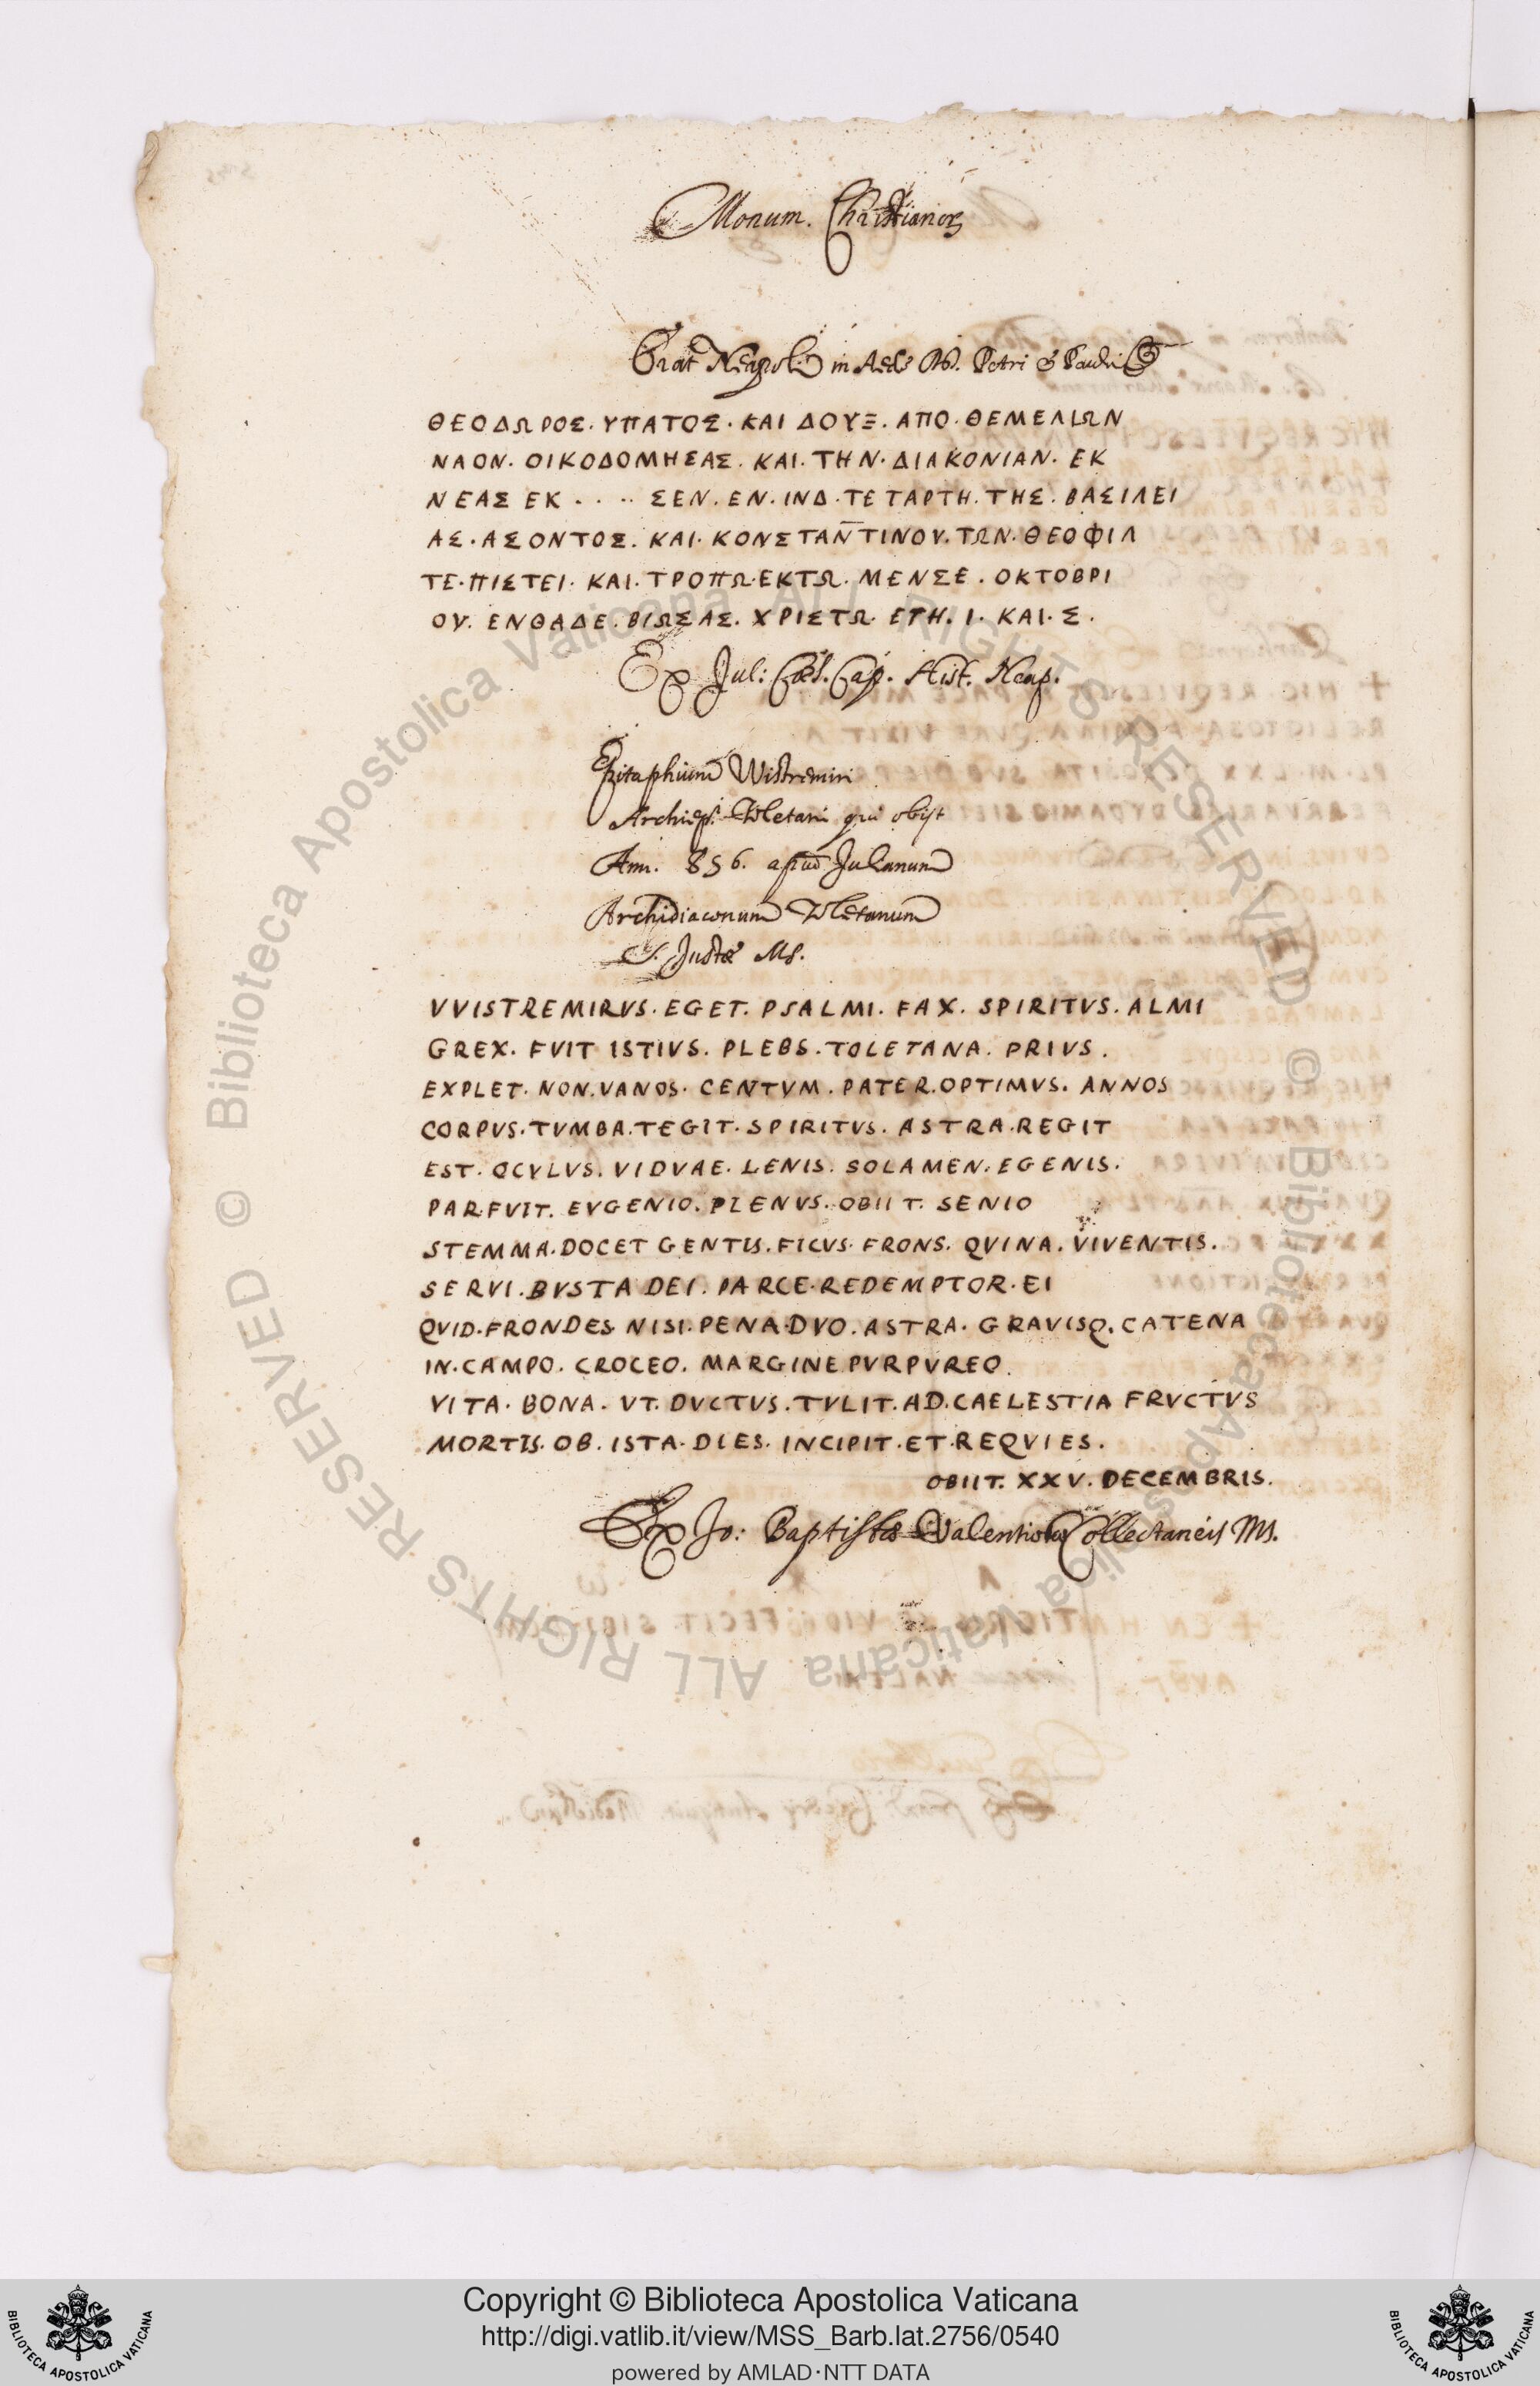 Monum. Christianor
Erat Neapoli in Aede Ap. Petri & Pauli
ΘΕΟΔΩΡΟΣ. ΥΠΑΤΟΣ. ΚΑΙ ΔΟΥΞ. ΑΠΟ. ΘΕΜΕΛΙΩΝ
ΝΑΟΝ. ΟΙΚΟΔΟΜΗΣΑΣ. ΚΑΙ. ΤΗΝ. ΔΙΑΚΟΝΙΑΝ. ΕΚ
ΝΕΑΣ ΕΚ . . . . ΣΕΝ. ΕΝ. ΙΝΔ. ΤΕΤΑΡΤΗ. ΤΗΣ. ΒΑΣΙΛΕΙ
ΑΣ. ΑΣΟΝΤΟΣ. ΚΑΙ. ΚΟΝΣΤΑΝ̅ΤΙΝΟΥ. ΤΩΝ. ΘΕΟΦΙΛ
ΤΕ. ΠΙΣΤΕΙ. ΚΑΙ. ΤΡΟΠΩ. ΕΚΤΩ. ΜΕΝΣΕ. ΟΚΤΟΒΡΙ
ΟΥ. ΕΝΘΑΔΕ. ΒΙΩΣΑΣ. ΧΡΙΣΤΩ. ΕΤΗ. Ι. ΚΑΙ. Σ.
Ex Jul: Cæs. Cap. Hist. Neap.
Epitaphium Wistremiri
Archiep. Toletani qui obijt
Ann. 856. apud Julianum
Archidiaconum Toletanum
S. Justæ Ms.
VVISTREMIRVS. EGET. PSALMI. FAX. SPIRITVS. ALMI
GREX. FVIT ISTIVS. PLEBS. TOLETANA. PRIVS.
EXPLET. NON. VANOS. CENTVM. PATER. OPTIMVS. ANNOS
CORPVS. TVMBA. TEGIT. SPIRITVS. ASTRA. REGIT
EST. OCVLVS. VIDVAE. LENIS. SOLAMEN. EGENIS.
PAR. FVIT. EVGENIO. PLENVS. OBIIT. SENIO
STEMMA. DOCET GENTIS. FICVS. FRONS. QVINA. VIVENTIS.
SERVI. BVSTA DEI. PARCE. REDEMPTOR. EI
QVID. FRONDES NISI. PENA. DVO. ASTRA. GRAVISQ. CATENA
IN. CAMPO. CROCEO. MARGINE PVRPVREO.
VITA. BONA. VT. DVCTVS. TVLIT. AD. CAELESTIA FRVCTVS
MORTIS. OB. ISTA. DIES. INCIPIT. ET. REQVIES.
OBIIT. XXV. DECEMBRIS.
Ex Jo: Baptistæ Valentiolæ Collectaneis Ms.
© Biblioteca Apostolica Vaticana ALL RIGHTS RESERVED © Biblioteca Apostolica Vaticana ALL RIGHTS RESERVED
BIBLIOTECA APOSTOLICA VATICANA
Copyright © Biblioteca Apostolica Vaticana
http://digi.vatlib.it/view/MSS_Barb.lat.2756/0540
powered by AMLAD·NTT DATA
BIBLIOTECA APOSTOLICA VATICANA